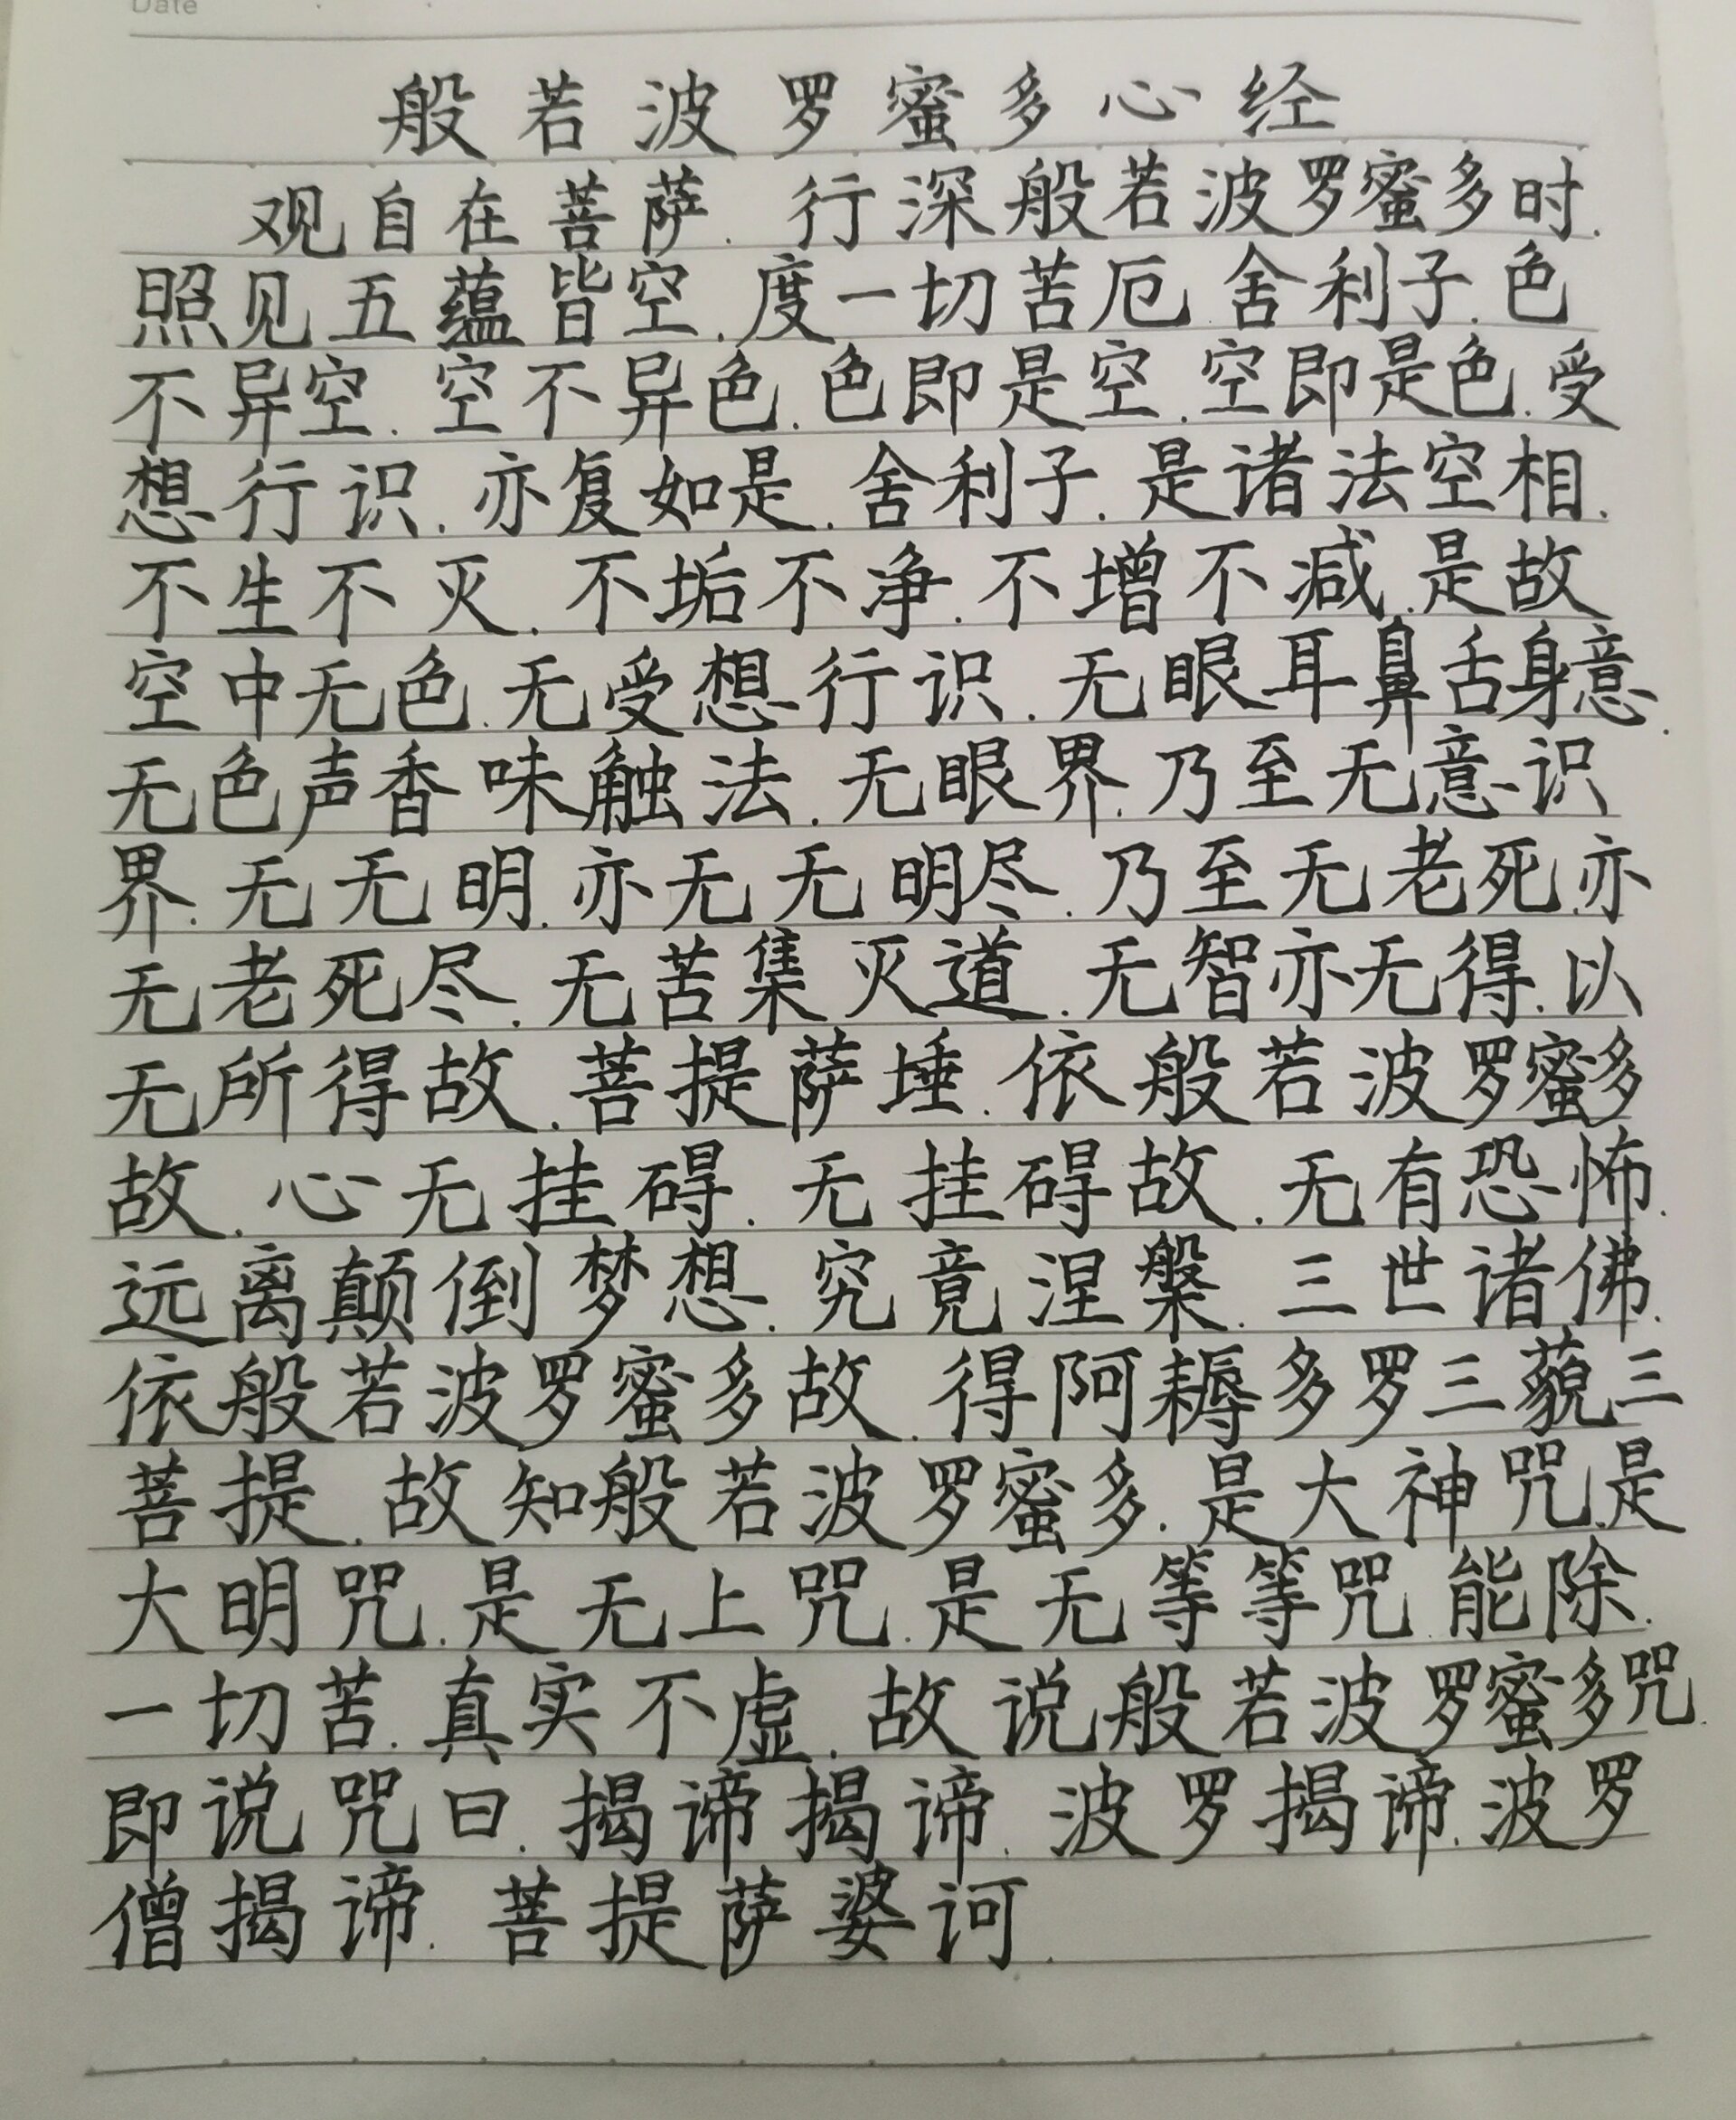 Date
般若波罗蜜多心经
观自在菩萨.行深般若波罗蜜多时.
照见五蕴皆空.度一切苦厄.舍利子.色
不异空.空不异色.色即是空.空即是色.受
想行识.亦复如是.舍利子.是诸法空相.
不生不灭.不垢不净.不增不减.是故
空中无色.无受想行识.无眼耳鼻舌身意.
无色声香味触法.无眼界.乃至无意识
界.无无明.亦无无明尽.乃至无老死.亦
无老死尽.无苦集灭道.无智亦无得.以
无所得故.菩提萨埵.依般若波罗蜜多
故.心无挂碍.无挂碍故.无有恐怖.
远离颠倒梦想.究竟涅槃.三世诸佛.
依般若波罗蜜多故.得阿耨多罗三藐三
菩提.故知般若波罗蜜多.是大神咒.是
大明咒.是无上咒.是无等等咒.能除.
一切苦.真实不虚.故说般若波罗蜜多咒.
即说咒曰.揭谛揭谛.波罗揭谛.波罗
僧揭谛.菩提萨婆诃.